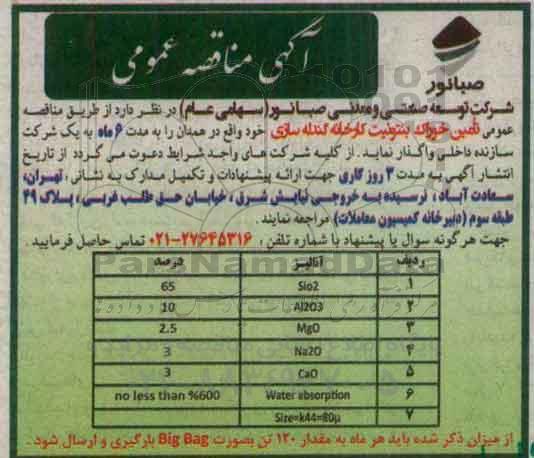 آگهی مناقصه عمومی
صبانور
شرکت توسعه صنعتی و معدنی صبانور (سهامی عام) در نظر دارد از طریق مناقصه
عمومی تأمین خوراک بنتونیت کارخانه گندله سازی خود واقع در همدان را به مدت ۶ ماه به یک شرکت
سازنده داخلی واگذار نماید. از کلیه شرکت های واجد شرایط دعوت می گردد از تاریخ
انتشار آگهی به مدت ۳ روز کاری جهت ارائه پیشنهادات و تکمیل مدارک به نشانی: تهران،
سعادت آباد، نرسیده به خروجی نیایش شرق، خیابان حق طلب غربی، پلاک ۴۹
طبقه سوم (دبیرخانه کمیسیون معاملات) مراجعه نمایند.
جهت هرگونه سوال یا پیشنهاد با شماره تلفن: ۲۷۶۴۵۳۱۶-۰۲۱ تماس حاصل فرمایید.
ردیف آنالیز درصد
۱ Sio2 65
۲ Al2O3 10
۳ MgO 2.5
۴ Na2O 3
۵ CaO 3
۶ Water absorption no less than %600
۷ Size=k44=80µ
از میزان ذکر شده باید هر ماه به مقدار ۱۲۰ تن بصورت Big Bag بارگیری و ارسال شود.
ParsNamadData